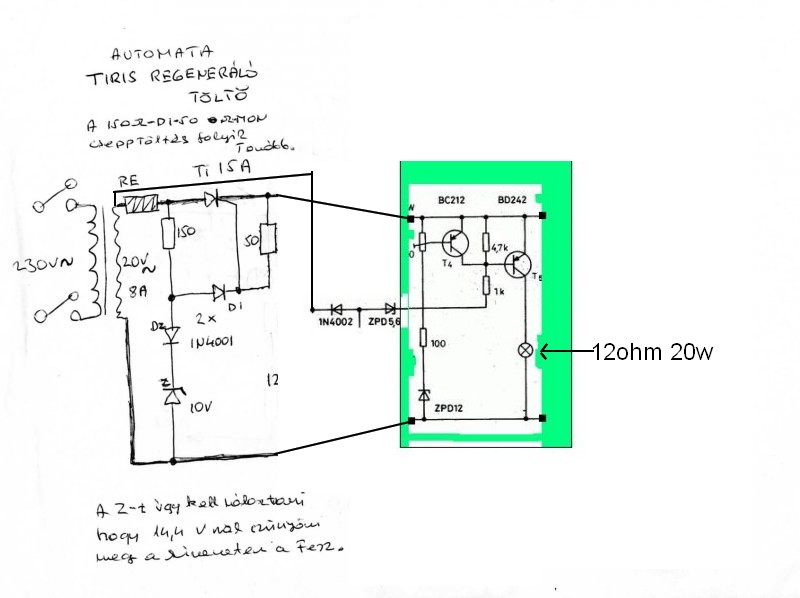 AUTOMATA
TIRIS REGENERÁLÓ
TÖLTŐ
A 150Ω-D1-50
csepptöltés folyik
Tovább.
RE
Ti 15A
150
50
230V~
20V~
8A
D1
2x
D2
1N4001
Z
10V
12
1N4002
ZPD5,6
BC212
BD242
T4
4,7k
T5
1k
100
ZPD12
12ohm 20w
A Z-t úgy kell
hogy 14,4 V nál szünjön
meg a a Fesz.